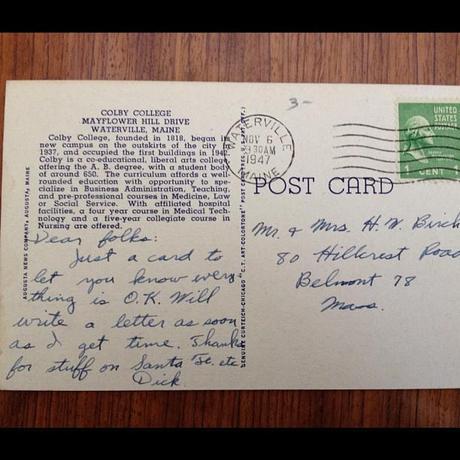 COLBY COLLEGE
MAYFLOWER HILL DRIVE
WATERVILLE, MAINE
Colby College, founded in 1818, began its
new campus on the outskirts of the city in
1937, and occupied the first buildings in 194
Colby is a co-educational, liberal arts college
offering the A. B. degree, with a student body
of around 650. The curriculum affords a well-
rounded education with opportunity to spe-
cialize in Business Administration, Teaching,
and pre-professional courses in Medicine, Law
or Social Service. With affiliated hospital
facilities, a four year course in Medical Tech-
nology and a five-year collegiate course in
Nursing are offered.
Dear folks:
Just a card to
let you know every
thing is O.K. Will
write a letter as soon
as I get time. Thanks
for stuff on Santa Fe. etc
Dick
AUGUSTA NEWS COMPANY, AUGUSTA, MAINE
GENUINE CURTEICH-CHICAGO "C.T. ART-COLORTONE" POST CARD
3-
WATERVILLE
NOV 6
30AM
1947
MAINE
UNITED
STATES
POSTAGE
1 CENT 1
POST CARD
Mr. & Mrs. H. W. Birch
80 Hillcrest Road
Belmont 78
Mass.